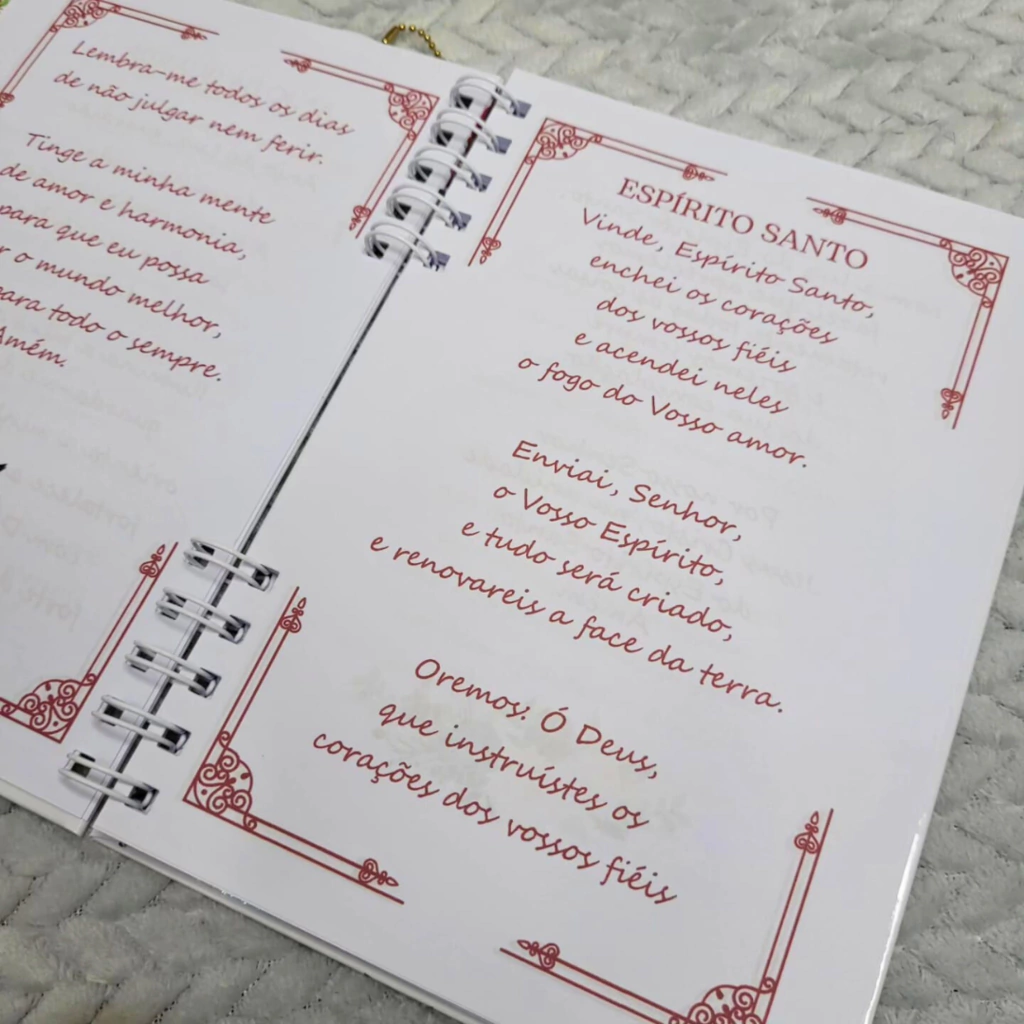 Lembra-me todos os dias
de não julgar nem ferir.
Tinge a minha mente
de amor e harmonia,
para que eu possa
o mundo melhor,
para todo o sempre.
Amém.
ESPÍRITO SANTO
Vinde, Espírito Santo,
enchei os corações
dos vossos fiéis
e acendei neles
o fogo do Vosso amor.
Enviai, Senhor,
o Vosso Espírito,
e tudo será criado,
e renovareis a face da terra.
Oremos: Ó Deus,
que instruístes os
corações dos vossos fiéis